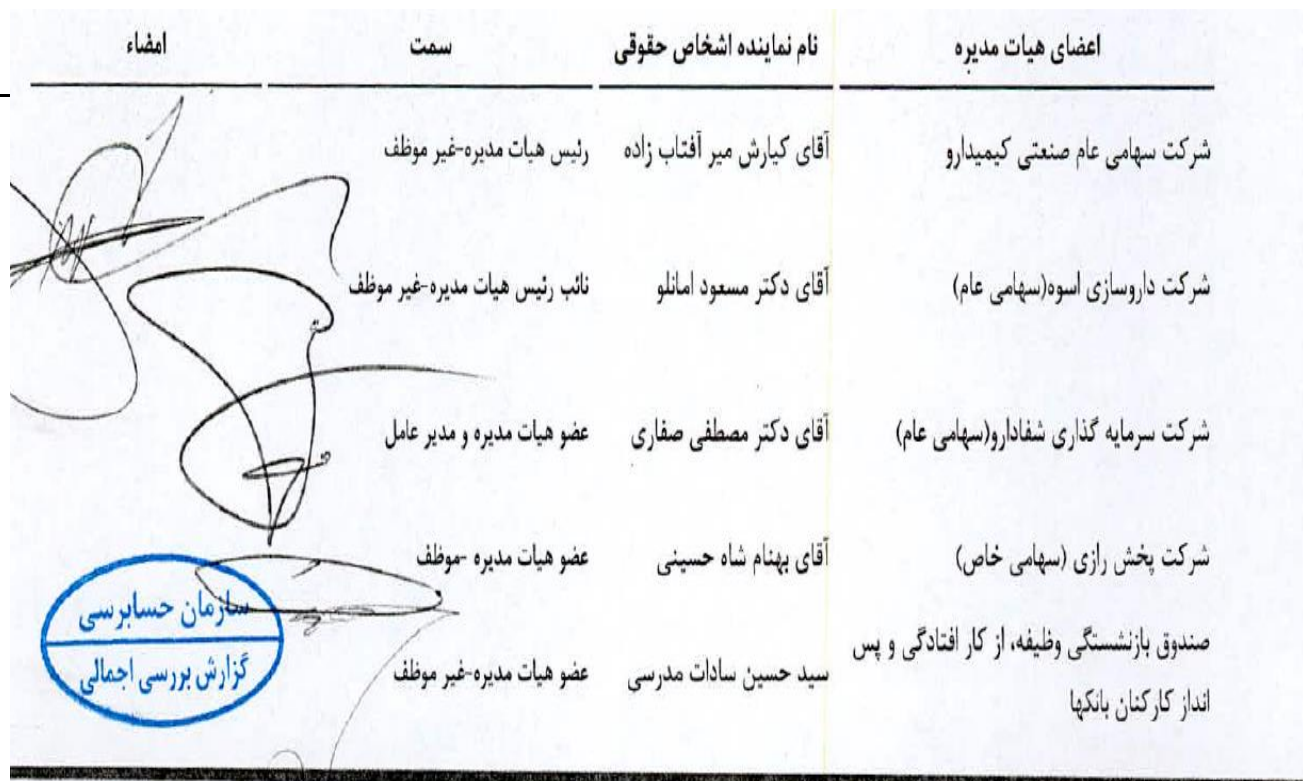 اعضای هیات مدیره	نام نماینده اشخاص حقوقی	سمت	امضاء
شرکت سهامی عام صنعتی کیمیدارو	آقای کیارش میر آفتاب زاده	رئیس هیات مدیره-غیر موظف
شرکت داروسازی اسوه(سهامی عام)	آقای دکتر مسعود امانلو	نائب رئیس هیات مدیره-غیر موظف
شرکت سرمایه گذاری شفادارو(سهامی عام)	آقای دکتر مصطفی صفاری	عضو هیات مدیره و مدیر عامل
شرکت پخش رازی (سهامی خاص)	آقای بهنام شاه حسینی	عضو هیات مدیره -موظف
صندوق بازنشستگی وظیفه، از کار افتادگی و پس
انداز کارکنان بانکها	سید حسین سادات مدرسی	عضو هیات مدیره-غیر موظف
سازمان حسابرسی
گزارش بررسی اجمالی